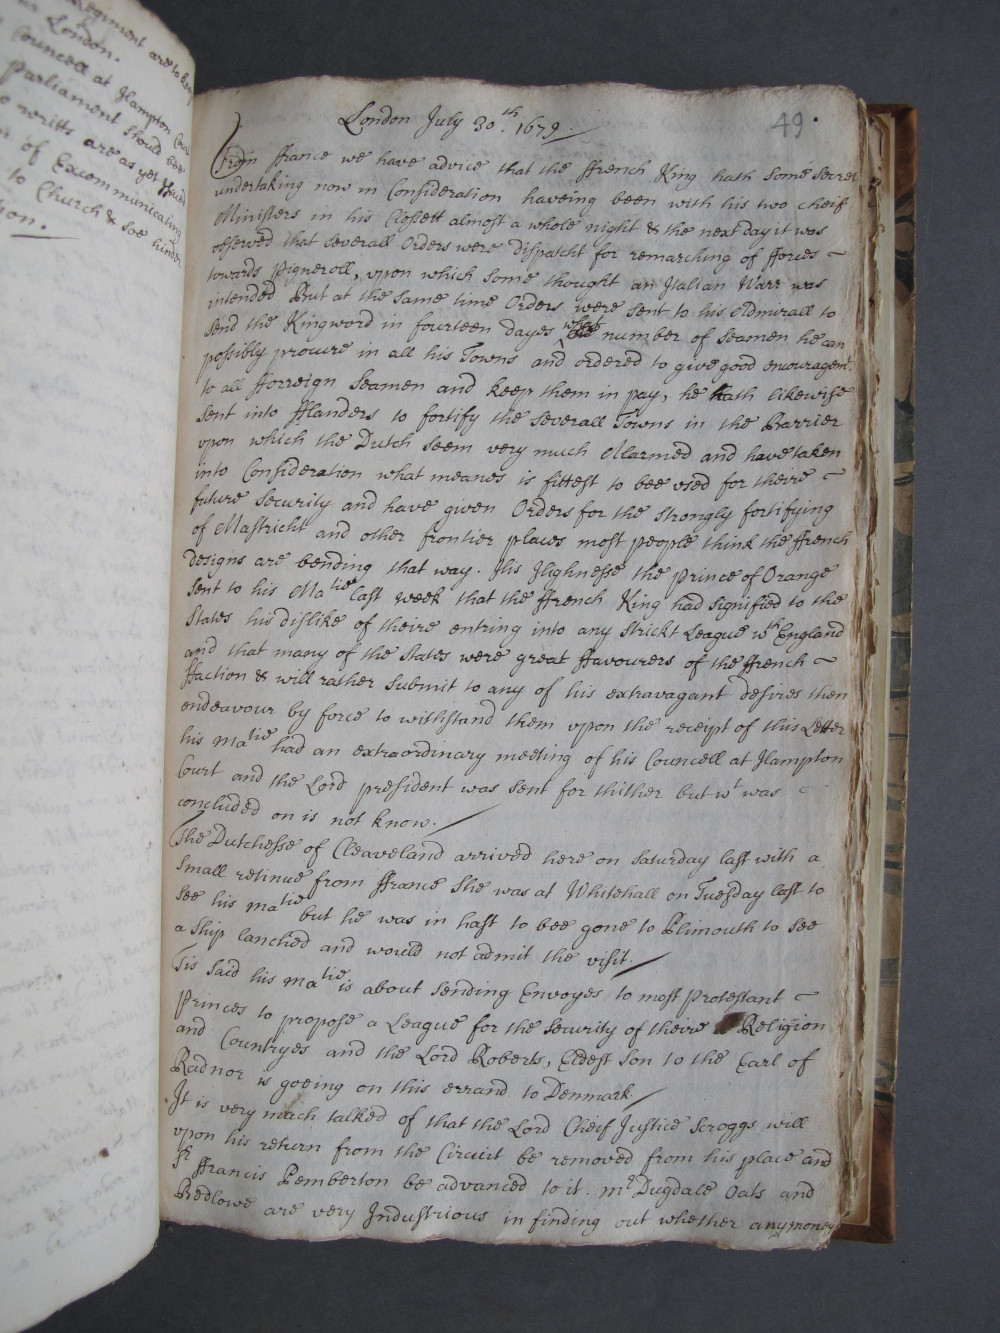 Regiment are to bee
London.
Councell at Hampton Court
Parliament should bee
writts are as yet issued
of Excommunicating
to Church & soe hinder
tion.
49
London July 30th. 1679.
From ffrance we have advice that the ffrench King hath some secret
undertaking now in Consideration haveing been with his two cheif
Ministers in his Clossett almost a whole night & the next day it was
observed that severall Orders were dispatcht for remarching of fforces
towards Pigneroll, upon which some thought an Italian Warr was
intended But at the same time Orders were sent to his Admirall to
send the King word in fourteen dayes what number of seamen he can
possibly procure in all his Towns and ordered to give good encouragemt.
to all fforreign Seamen and keep them in pay, he hath likewise
sent into fflanders to fortify the severall Towns in the Barrier
upon which the Dutch seem very much Allarmed and have taken
into Consideration what meanes is fittest to bee used for theire
future security and have given Orders for the strongly fortifying
of Mastricht and other frontier places most people think the ffrench
designs are bending that way. His Highnesse the Prince of Orange
sent to his Matie last week that the ffrench King had signified to the
States his dislike of theire entring into any strickt League wth England
and that many of the States were great ffavourers of the ffrench
ffaction & will rather submit to any of his extravagant desires then
endeavour by force to withstand them upon the receipt of this Letter
his Matie had an extraordinary meeting of his Councell at Hampton
Court and the Lord president was sent for thither but wt was
concluded on is not know.
The Dutchesse of Cleaveland arrived here on saturday last with a
small retinue from ffrance she was at Whitehall on Tuesday last to
see his Matie but he was in hast to bee gone to Plimouth to see
a Ship lanched and would not admit the visit.
Tis said his Matie is about sending Envoyes to most Protestant
Princes to propose a League for the security of theire Religion
and Countryes and the Lord Roberts, Eldest Son to the Earl of
Radnor is goeing on this errand to Denmark.
It is very much talked of that the Lord Cheif Justice Scroggs will
upon his return from the Circuit be removed from his place and
Sr ffrancis Pemberton be advanced to it. Mr Dugdale Oats and
Bedlowe are very Industrious in finding out whether any money